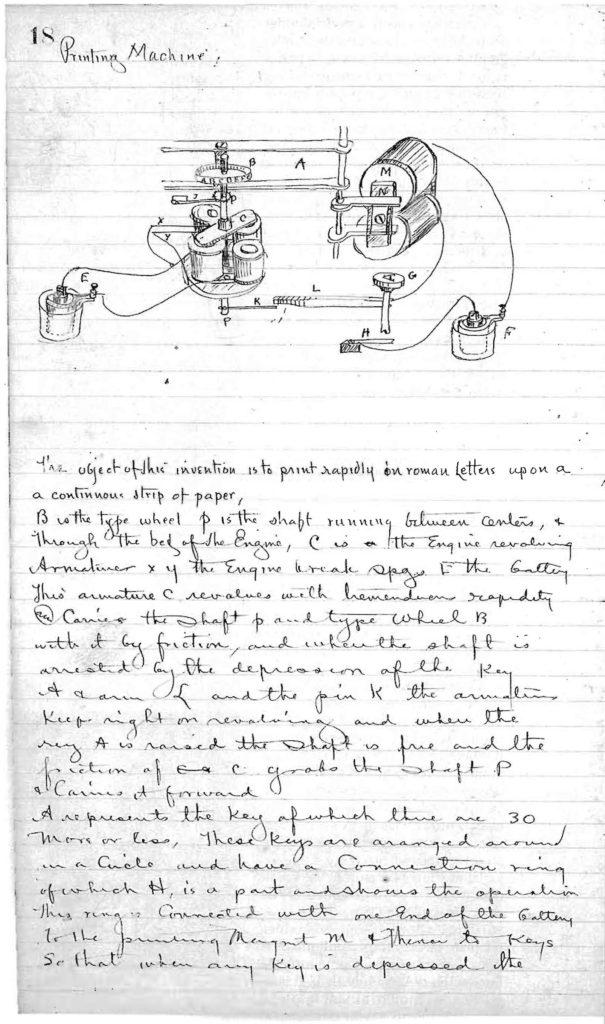 18
Printing Machine,
A
B
ABCDEF
J
P
C
X
Y
E
P
K
L
M
N
O
G
A
H
F
The object of this invention is to print rapidly in roman letters upon a
a continuous strip of paper,
B is the type wheel P is the shaft running between centers, &
through the bed of the Engine, C is the Engine revolving
Armatures x y the Engine break spgs E the battery
This armature C revolves with tremendous rapidity
Carries the shaft p and type wheel B
with it by friction, and when the shaft is
arrested by the depression of the Key
A & arm L and the pin K the armature
Keeps right on revolving and when the
key A is raised the shaft is free and the
friction of C grabs the shaft P
& Carries it forward
A represents the Key of which there are 30
More or less, These Keys are aranged around
in a Circle and have a Connection ring
of which H, is a part and shows the operation
This ring is Connected with one End of the battery
to the printing Magnet M & thence to Keys
So that when any Key is depressed the